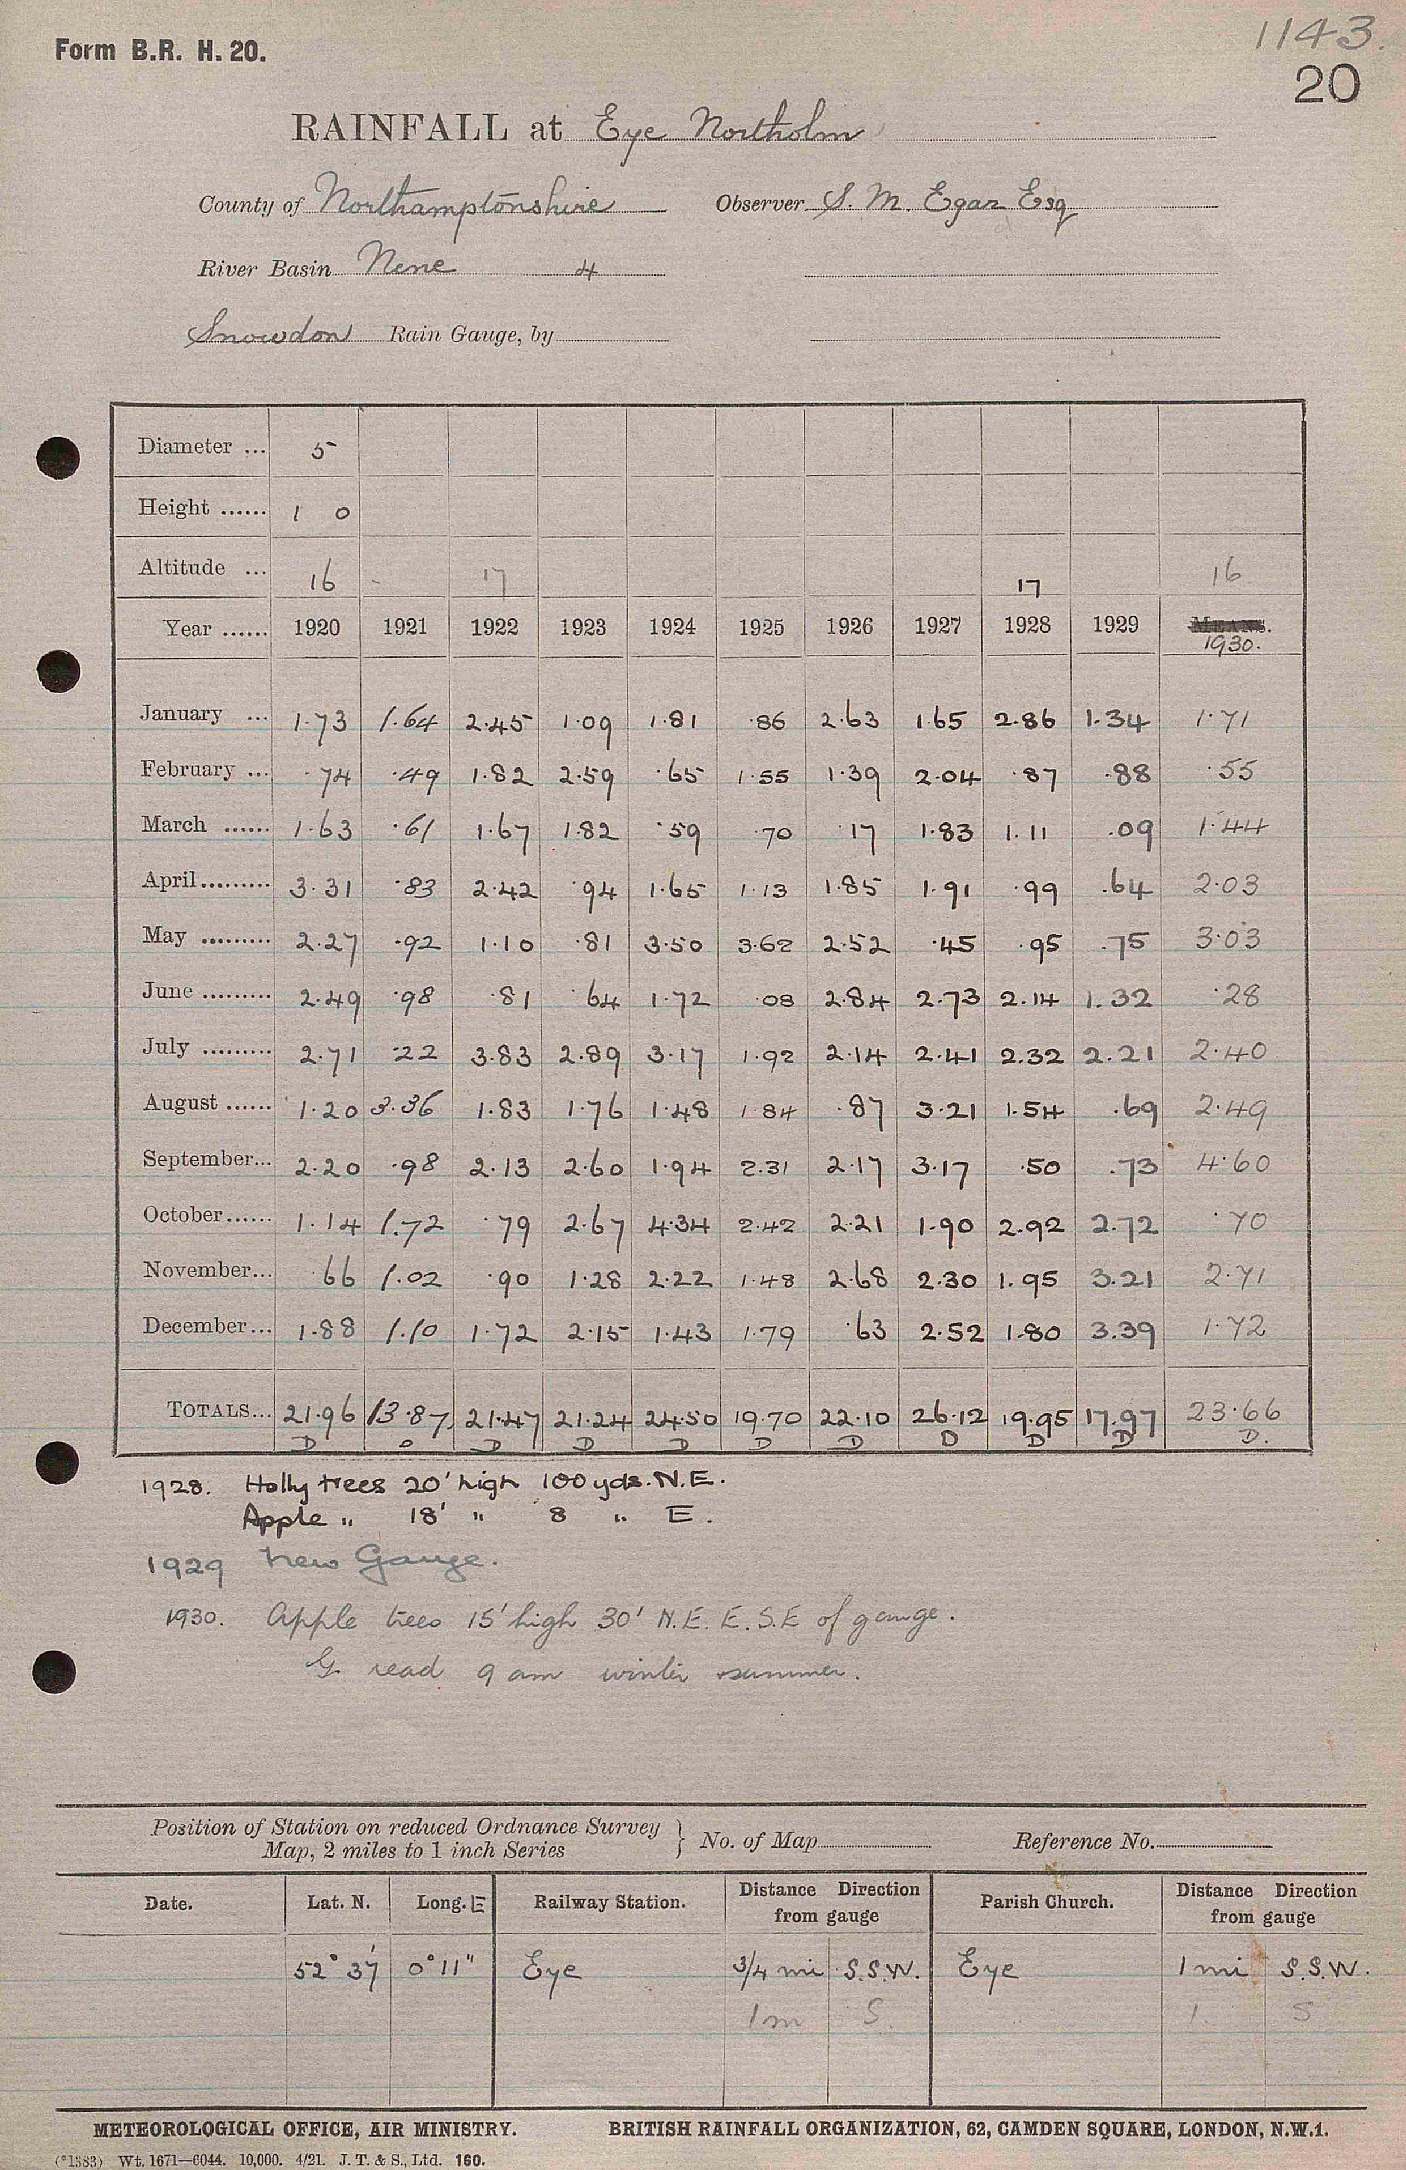 Form B.R. H. 20.
1143.
20
RAINFALL at Eye Northolm
County of Northamptonshire Observer S. M. Egar Esq
River Basin Nene 4
Snowdon Rain Gauge, by
Diameter ... 5
Height ...... 1 0
Altitude ... 16 - 17 17 16
Year ...... 1920 1921 1922 1923 1924 1925 1926 1927 1928 1929 MEANS.
1930.
January ... 1.73 1.64 2.45 1.09 1.81 .86 2.63 1.65 2.86 1.34 1.71
February ... .74 .49 1.82 2.59 .65 1.55 1.39 2.04 .87 .88 .55
March ...... 1.63 .61 1.67 1.82 .59 .70 .17 1.83 1.11 .09 1.44
April......... 3.31 .83 2.42 .94 1.65 1.13 1.85 1.91 .99 .64 2.03
May ......... 2.27 .92 1.10 .81 3.50 3.62 2.52 .45 .95 .75 3.03
June ......... 2.49 .98 .81 .64 1.72 .08 2.84 2.73 2.14 1.32 .28
July ......... 2.71 .22 3.83 2.89 3.17 1.92 2.14 2.41 2.32 2.21 2.40
August ...... 1.20 3.36 1.83 1.76 1.48 1.84 .87 3.21 1.54 .69 2.49
September... 2.20 .98 2.13 2.60 1.94 2.31 2.17 3.17 .50 .73 4.60
October...... 1.14 1.72 .79 2.67 4.34 2.42 2.21 1.90 2.92 2.72 .70
November... .66 1.02 .90 1.28 2.22 1.48 2.68 2.30 1.95 3.21 2.71
December... 1.88 1.10 1.72 2.15 1.43 1.79 .63 2.52 1.80 3.39 1.72
TOTALS... 21.96 13.87 21.47 21.24 24.50 19.70 22.10 26.12 19.95 17.97 23.66
D D D D D D D D D D D.
1928. Holly trees 20' high 100 yds. N.E.
Apple " 18' " 8 " E.
1929 New Gauge.
1930. Apple trees 15' high 30' N.E. E. S.E of gauge.
G read 9 am winter & summer.
Position of Station on reduced Ordnance Survey
Map, 2 miles to 1 inch Series } No. of Map Reference No.
Date. Lat. N. Long. E Railway Station. Distance Direction from gauge Parish Church. Distance Direction from gauge
52° 37' 0° 11" Eye 3/4 mi S.S.W. Eye 1 mi S.S.W.
1 m S. 1. S
METEOROLOGICAL OFFICE, AIR MINISTRY. BRITISH RAINFALL ORGANIZATION, 62, CAMDEN SQUARE, LONDON, N.W.1.
(*1383) Wt. 1671—6044. 10,000. 4/21. J. T. & S., Ltd. 160.